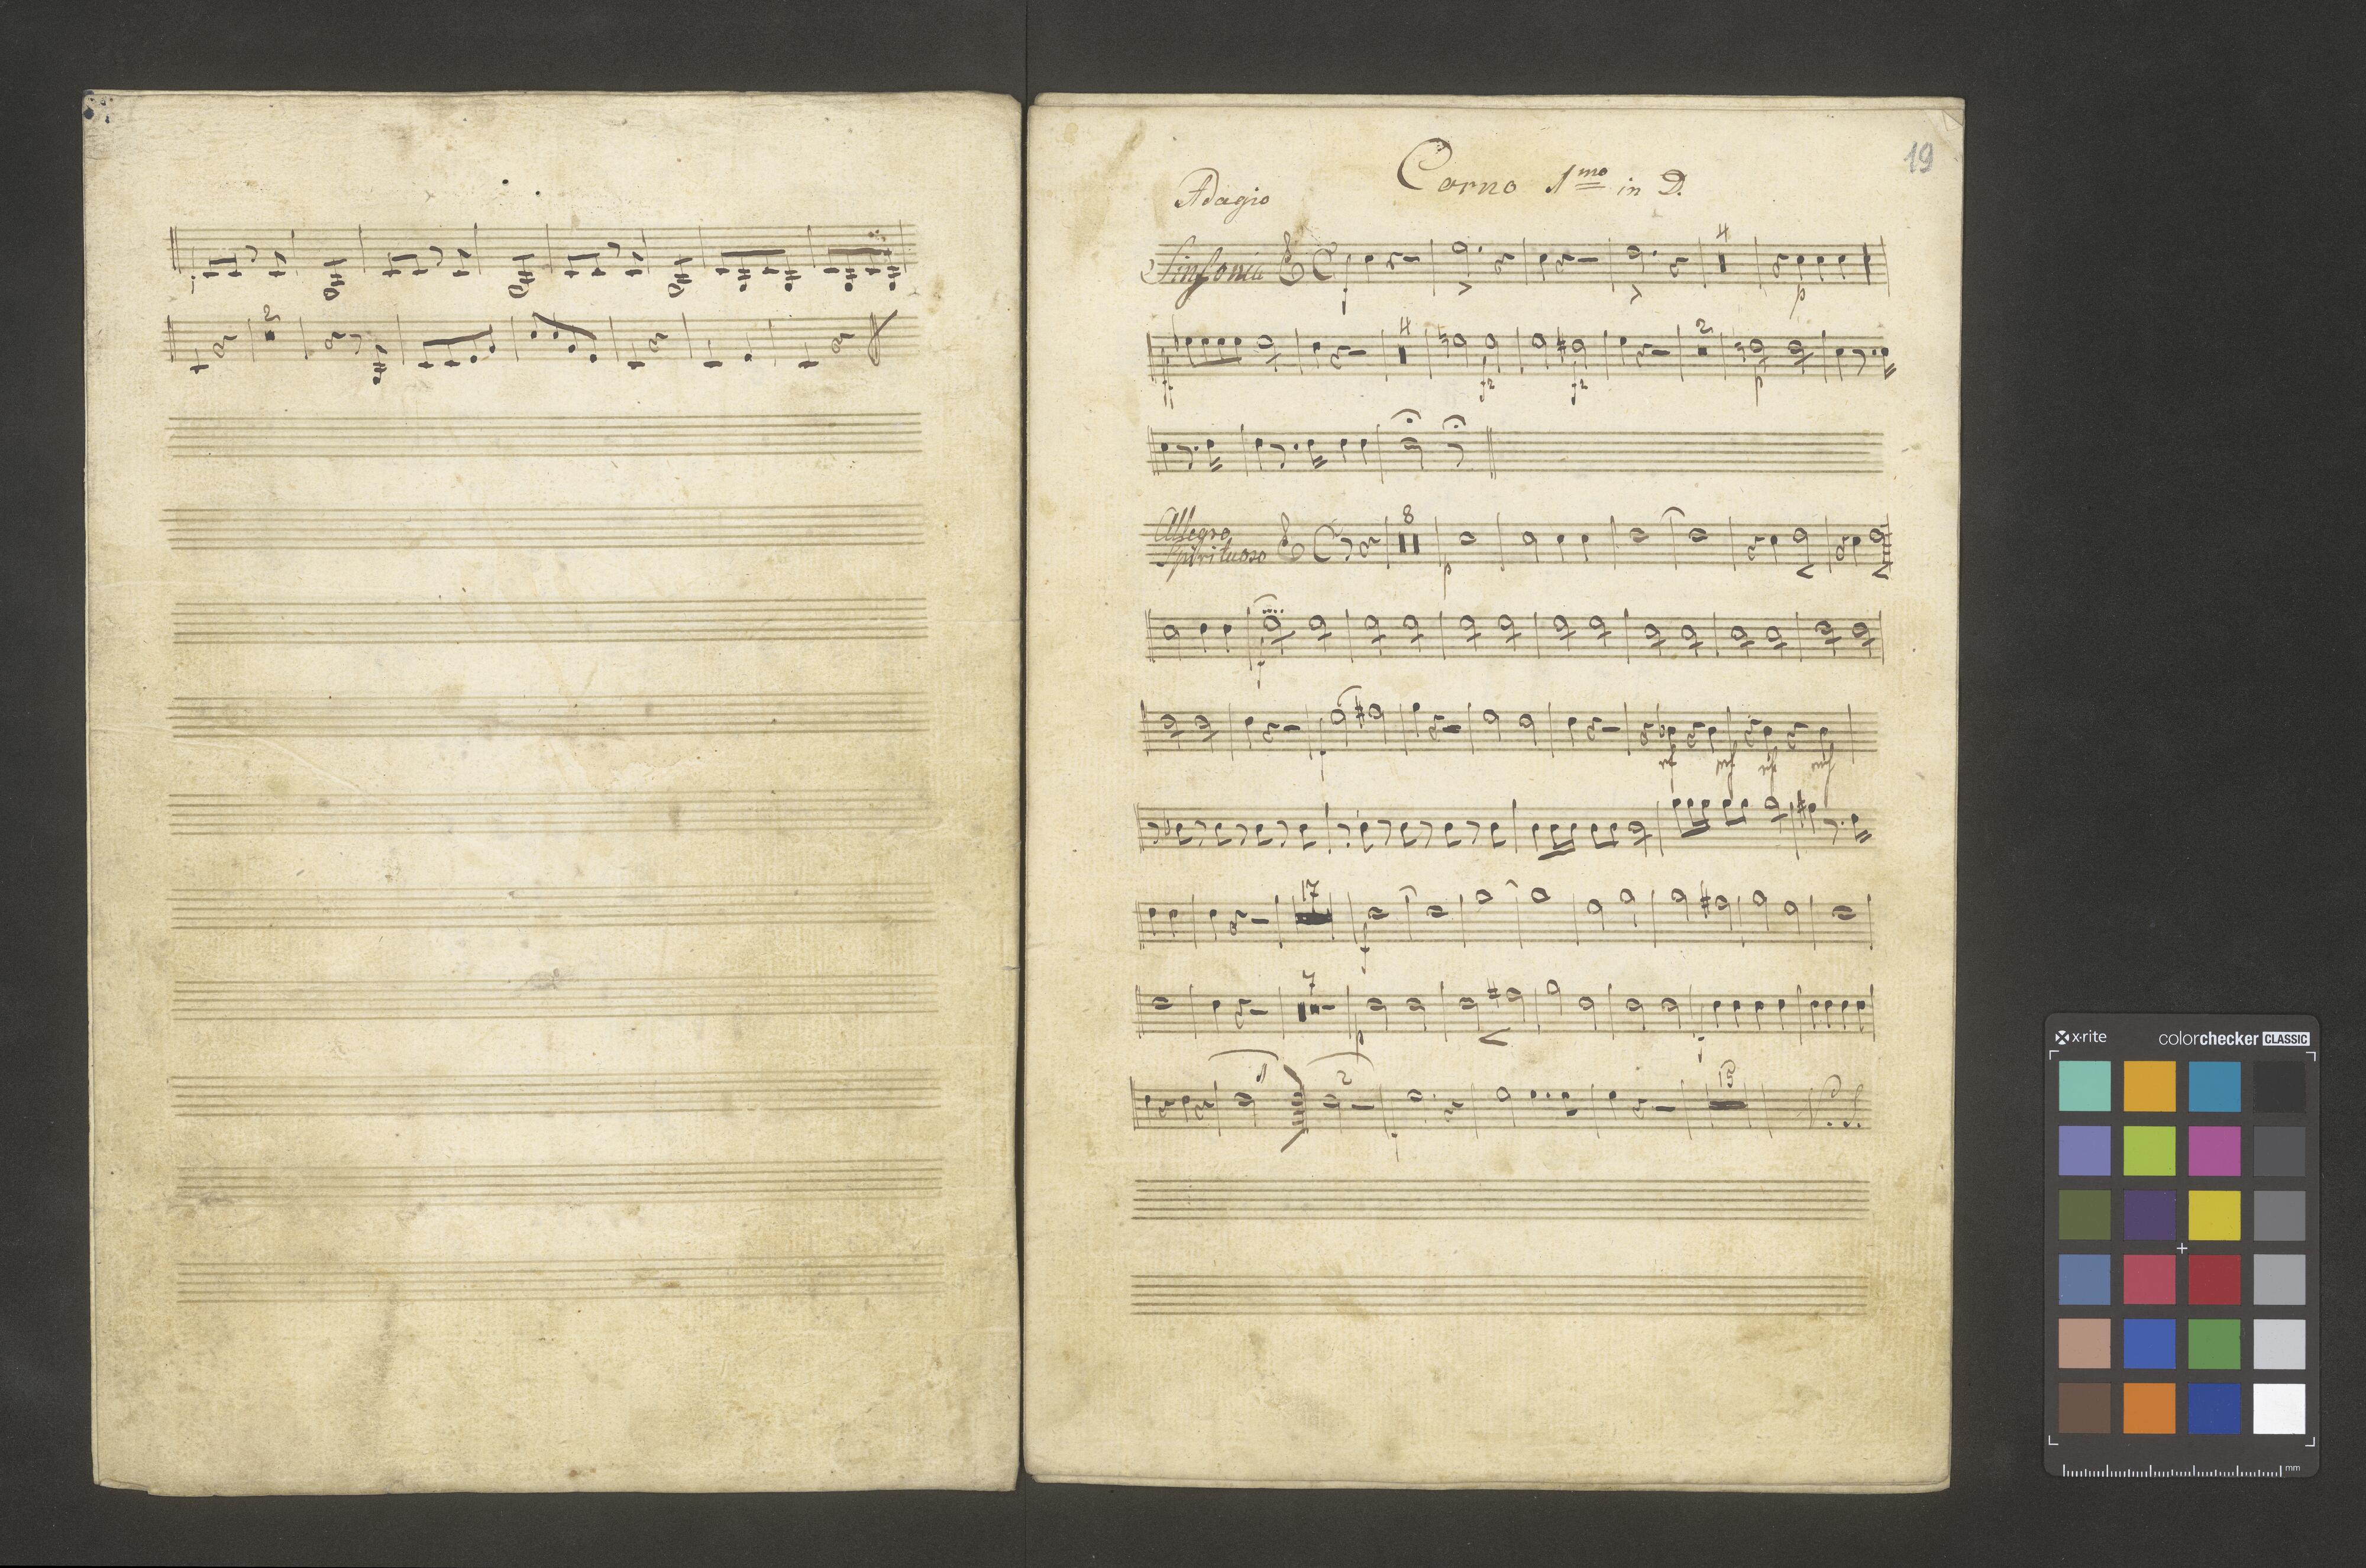 2
19
Corno 1mo in D.
Adagio
Sinfonia
4
p
4
2
p
Allegro
Spirituoso
8
p
mf mf mf mf
17
7
p
1 2
15
x-rite
colorchecker CLASSIC
mm